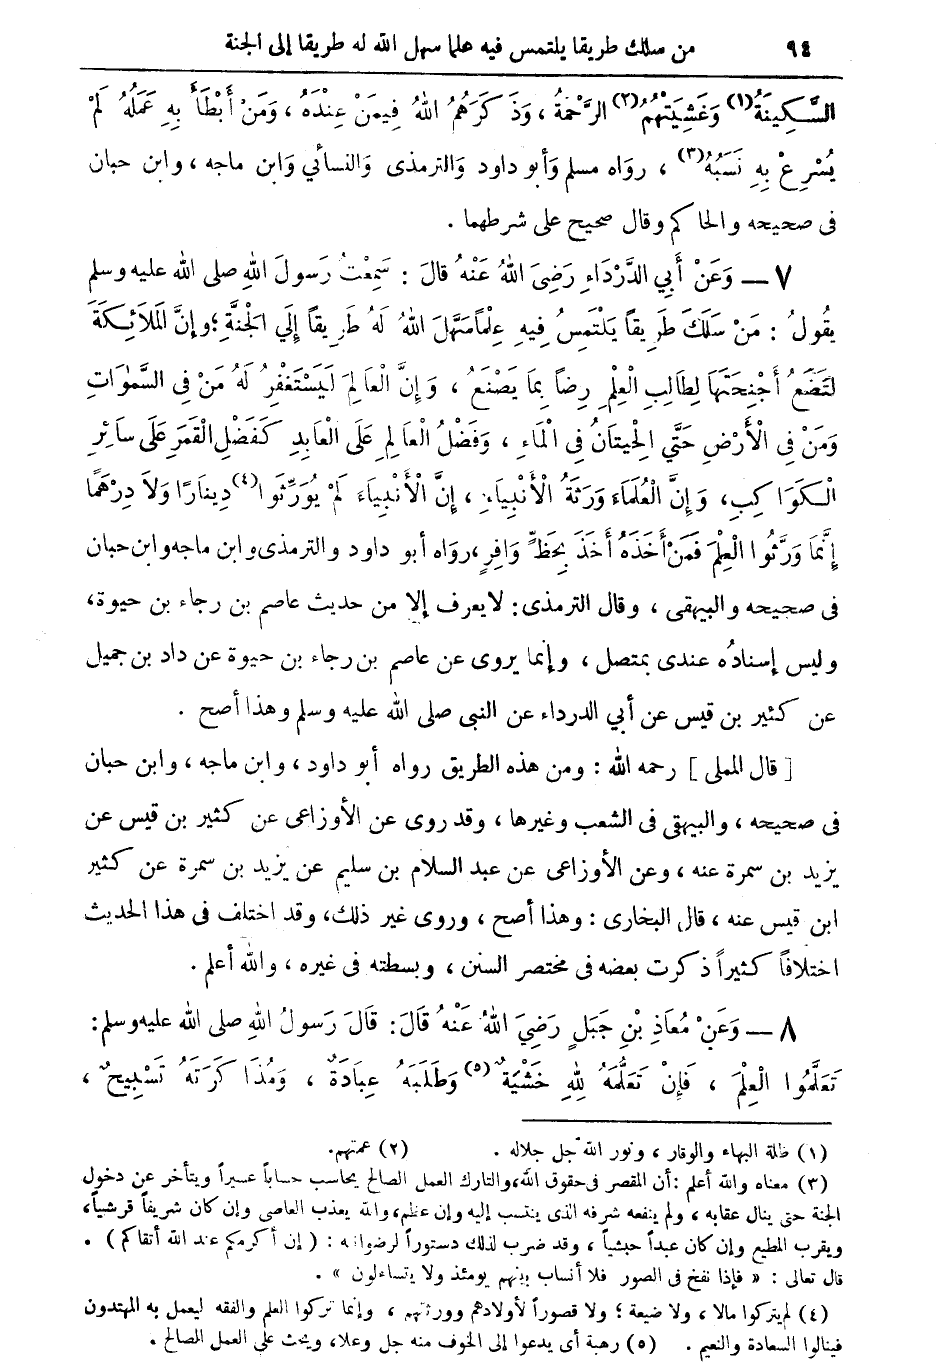 ٩٤ من سلك طريقا يلتمس فيه علما سهل الله له طريقا إلى الجنة
السَّكِينَةُ (١) وَغَشِيَتْهُمُ (٢) الرَّحْمَةُ ، وَذَكَرَهُمُ اللهُ فِيمَنْ عِنْدَهُ ، وَمَنْ أَبْطَأَ بِهِ عَمَلُهُ لَمْ
يُسْرِعْ بِهِ نَسَبُهُ (٣) ، رواه مسلم وأبو داود والترمذى والنسائي وابن ماجه ، وابن حبان
فى صحيحه والحاكم وقال صحيح على شرطهما .
٧ — وَعَنْ أَبِي الدَّرْدَاءِ رَضِيَ اللهُ عَنْهُ قَالَ : سَمِعْتُ رَسُولَ اللهِ صلى الله عليه وسلم
يَقُولُ : مَنْ سَلَكَ طَرِيقاً يَلْتَمِسُ فِيهِ عِلْماً سَهَّلَ اللهُ لَهُ طَرِيقاً إِلَي الجَنَّةِ ؛ وإنَّ المَلَائِكَةَ
لَتَضَعُ أَجْنِحَتَهَا لِطَالِبِ الْعِلْمِ رِضاً بِمَا يَصْنَعُ ، وَإِنَّ الْعَالِمَ لَيَسْتَغْفِرُ لَهُ مَنْ فِى السَّمٰوَاتِ
وَمَنْ فِى الْأَرْضِ حَتَّي الْحِيتَانُ فِى المَاءِ ، وَفَضْلُ الْعَالِمِ عَلَى الْعَابِدِ كَفَضْلِ الْقَمَرِ عَلَى سَائِرِ
الْكَوَاكِبِ ، وَإِنَّ الْعُلَمَاءَ وَرَثَةُ الْأَنْبِيَاءِ ، إِنَّ الْأَنْبِيَاءَ لَمْ يُوَرِّثُوا (٤) دِينَارًا وَلاَ دِرْهَمًا
إِنَّمَا وَرَّثُوا الْعِلْمَ فَمَنْ أَخَذَهُ أَخَذَ بِحَظٍّ وَافِرٍ ، رواه أبو داود والترمذى وابن ماجه وابن حبان
فى صحيحه والبيهقى ، وقال الترمذى : لا يعرف إلا من حديث عاصم بن رجاء بن حيوة ،
وليس إسنادُه عندى بمتصل ، وإنما يروى عن عاصم بن رجاء بن حيوة عن داد بن جميل
عن كثير بن قيس عن أبي الدرداء عن النبى صلى الله عليه وسلم وهذا أصح .
[ قال المملى ] رحمه الله : ومن هذه الطريق رواه أبو داود ، وابن ماجه ، وابن حبان
فى صحيحه ، والبيهقى فى الشعب وغيرها ، وقد روى عن الأوزاعى عن كثير بن قيس عن
يزيد بن سمرة عنه ، وعن الأوزاعى عن عبد السلام بن سليم عن يزيد بن سمرة عن كثير
ابن قيس عنه ، قال البخارى : وهذا أصح ، وروى غير ذلك، وقد اختلف فى هذا الحديث
اختلافاً كثيراً ذكرت بعضه فى مختصر السنن ، وبسطته فى غيره ، والله أعلم .
٨ — وَعَنْ مُعَاذِ بْنِ جَبَلٍ رَضِيَ اللهُ عَنْهُ قَالَ : قَالَ رَسُولُ اللهِ صلى الله عليه وسلم :
تَعَلَّمُوا الْعِلْمَ ، فَإِنْ تَعَلُّمَهُ لِلهِ خَشْيَةٌ (٥) وَطَلَبَهُ عِبَادَةٌ ، وَمُذَاكَرَتَهُ تَسْبِيحٌ ،
(١) ظلة البهاء والوقار ، ونور الله جل جلاله . (٢) عمتهم.
(٣) معناه والله أعلم : أن المقصر فى حقوق الله، والتارك العمل الصالح يحاسب حساباً عسيراً ويتأخر عن دخول
الجنة حتى ينال عقابه ، ولم ينفعه شرفه الذى ينتسب إليه وإن عظم، والله يعذب العاصى وإن كان شريفاً قرشياً،
ويقرب المطيع وإن كان عبداً حبشياً ، وقد ضرب لذلك دستوراً لرضوانه : ( إن أكرمكم عند الله أتقاكم ) .
قال تعالى : « فإذا نفخ فى الصور فلا أنساب بينهم يومئذ ولا يتساءلون » .
(٤) لم يتركوا مالا ، ولا ضيعة ؛ ولا قصوراً لأولادهم وورثتهم ، وإنما تركوا العلم والفقه ليعمل به المهتدون
فينالوا السعادة والنعيم . (٥) رهبة أى يدعوا إلى الخوف منه جل وعلا، ويحث على العمل الصالح .